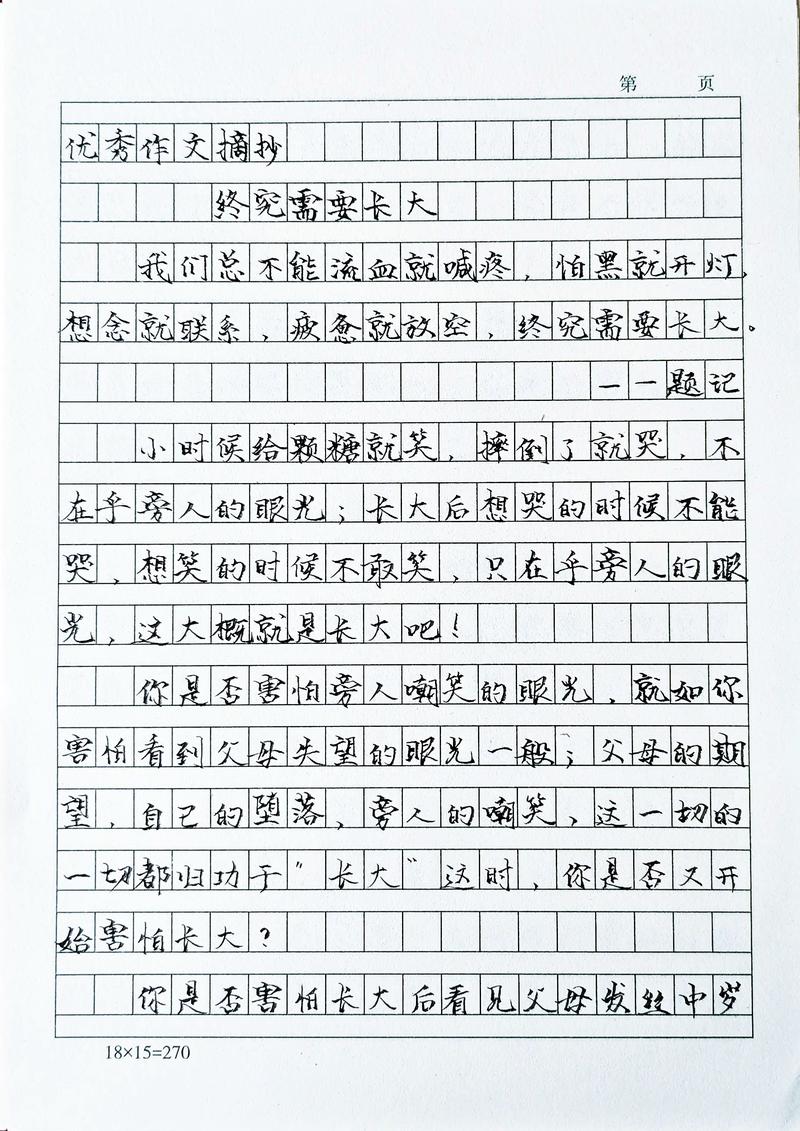 第 页
优秀作文摘抄
终究需要长大
我们总不能流血就喊疼，怕黑就开灯，
想念就联系，疲惫就放空，终究需要长大。
——题记
小时候给颗糖就笑，摔倒了就哭，不
在乎旁人的眼光；长大后想哭的时候不能
哭，想笑的时候不敢笑，只在乎旁人的眼
光，这大概就是长大吧！
你是否害怕旁人嘲笑的眼光，就如你
害怕看到父母失望的眼光一般；父母的期
望，自己的堕落，旁人的嘲笑，这一切的
一切都归功于“长大”这时，你是否又开
始害怕长大？
你是否害怕长大后看见父母发丝中岁
18×15=270